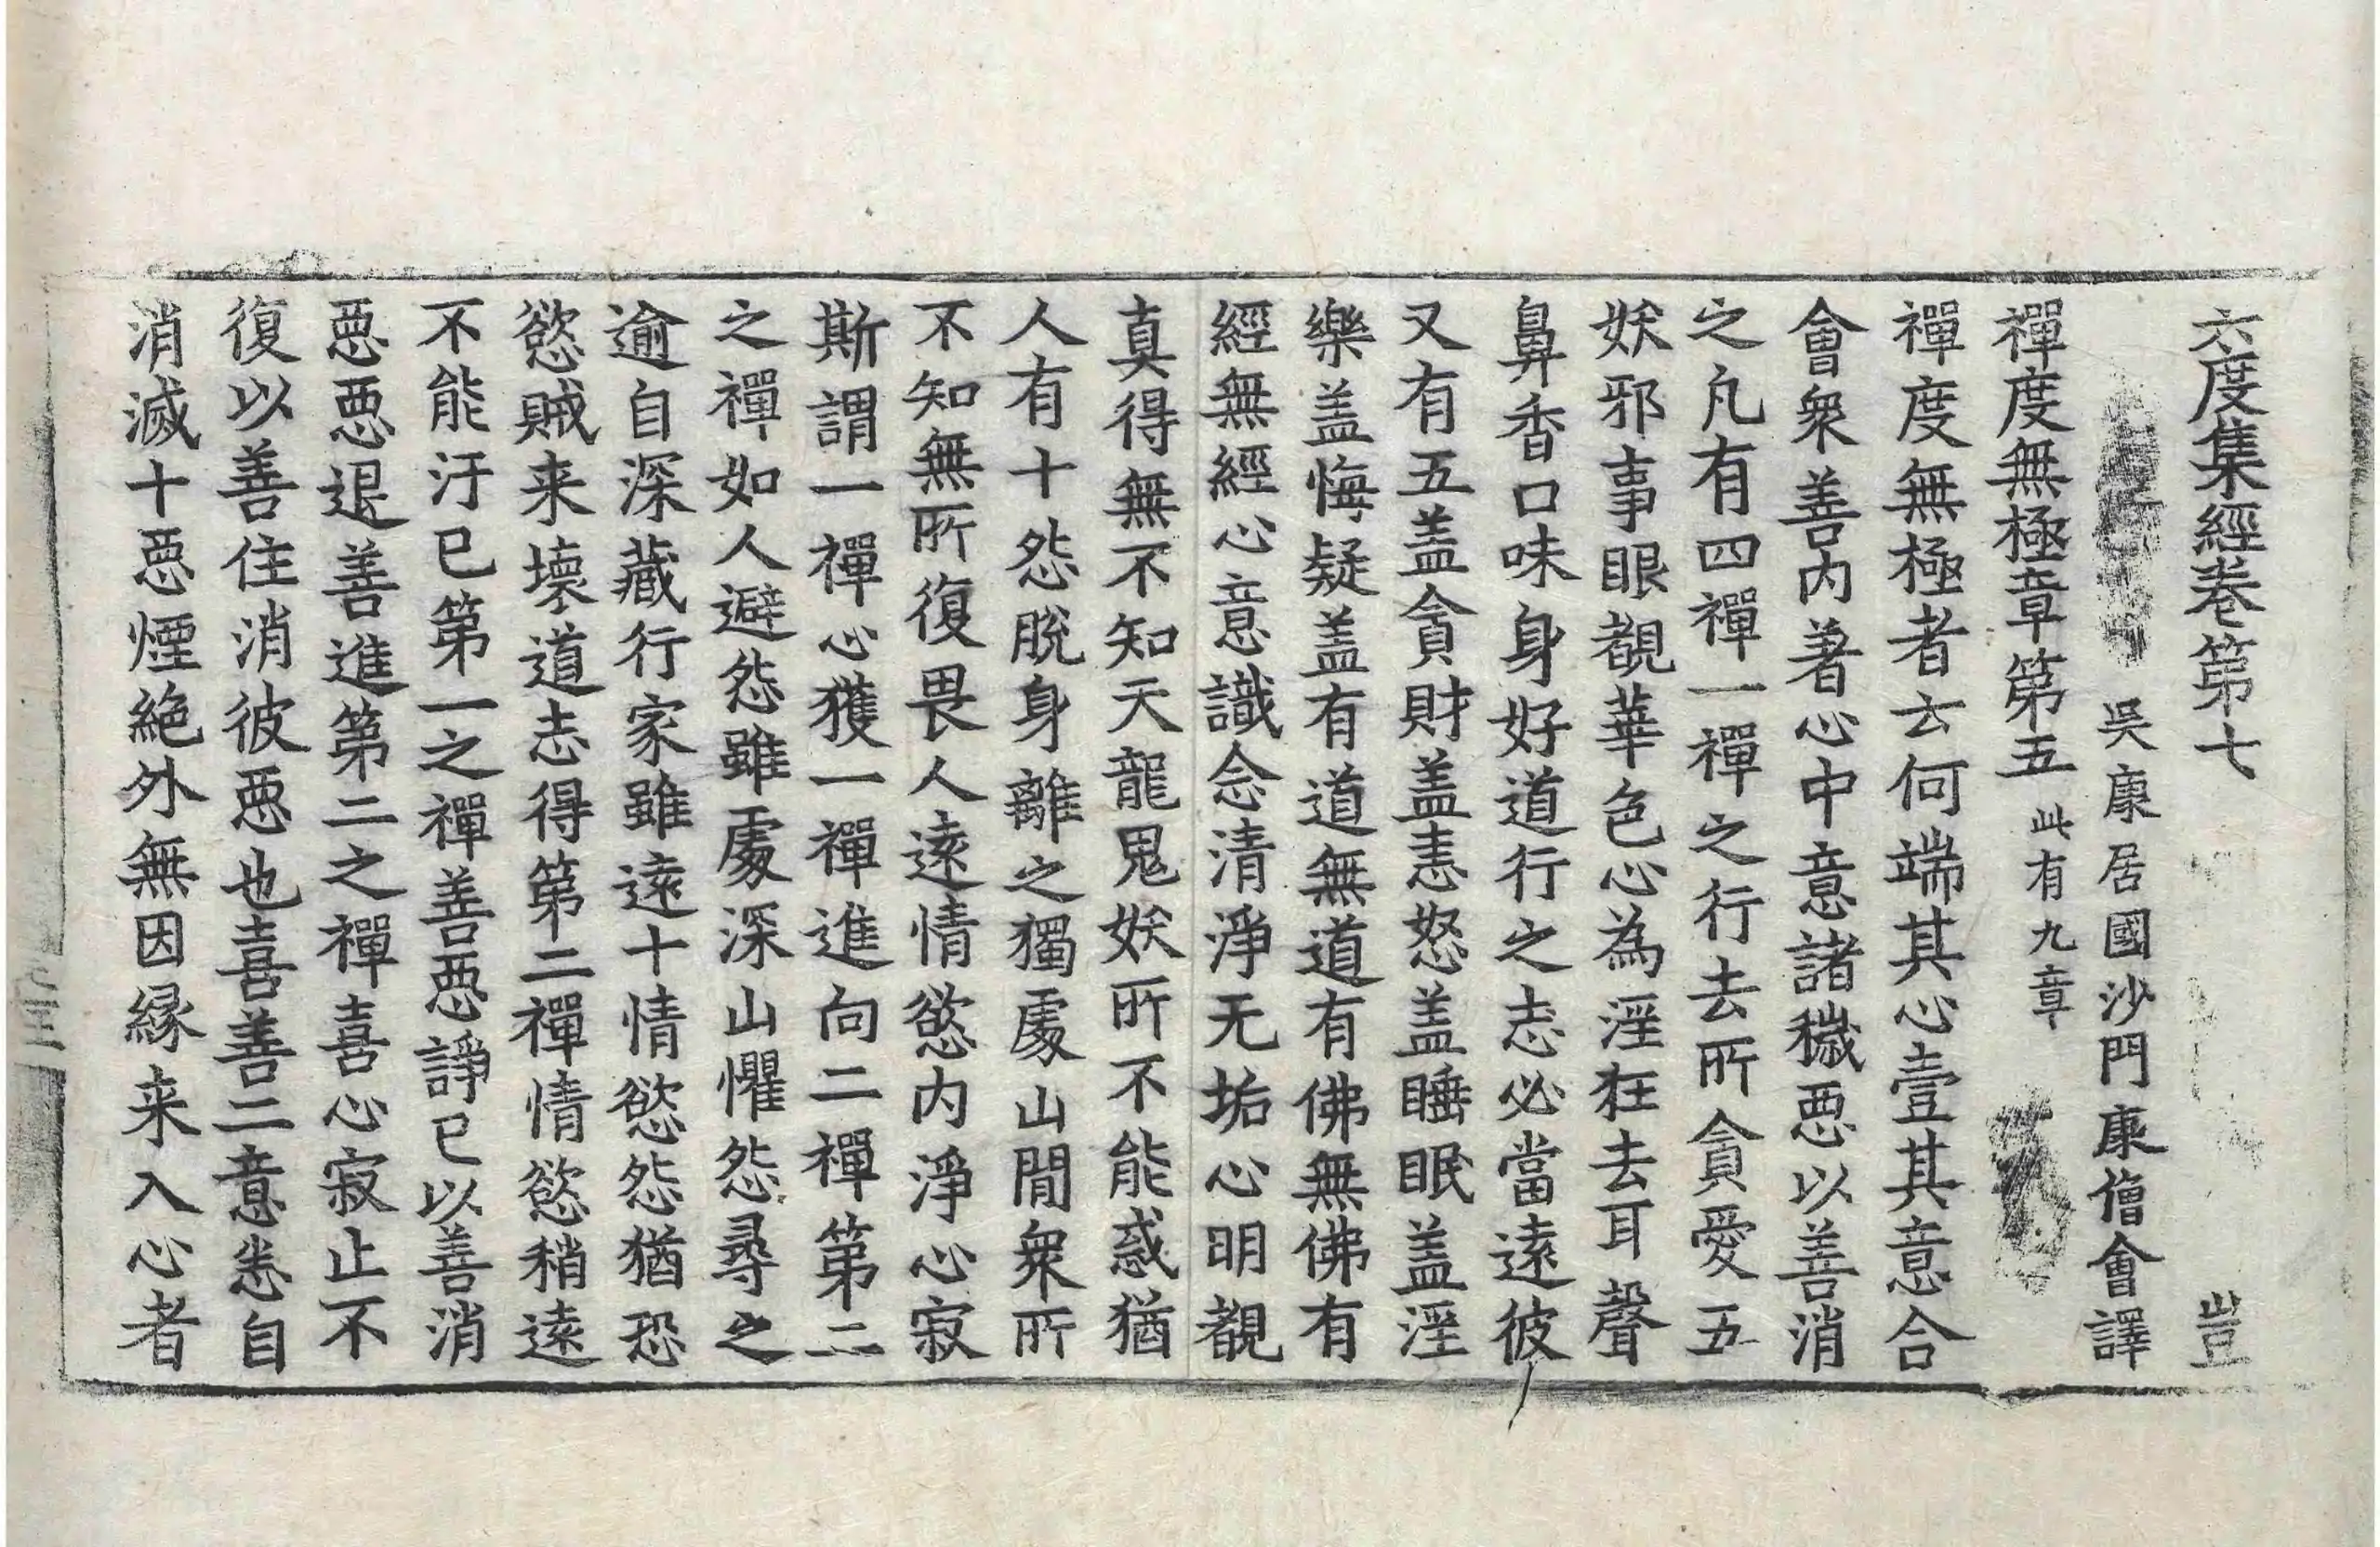 六度集經卷第七 豈
吳康居國沙門康僧會譯
禪度無極章第五 此有九章
禪度無極者云何端其心壹其意合
會衆善內著心中意諸穢惡以善消
之凡有四禪一禪之行去所貪愛五
妖邪事眼覩華色心為淫狂去耳聲
鼻香口味身好道行之志必當遠彼
又有五盖貪財盖恚怒盖睡眠盖淫
樂盖悔疑盖有道無道有佛無佛有
經無經心意識念清淨无垢心明覩
真得無不知天龍鬼妖所不能惑猶
人有十怨脫身離之獨處山閒衆所
不知無所復畏人遠情慾內淨心寂
斯謂一禪心獲一禪進向二禪第二
之禪如人避怨雖處深山懼怨尋之
逾自深藏行家雖遠十情慾怨猶恐
慾賊来壞道志得第二禪情慾稍遠
不能汙已第一之禪善惡諍已以善消
惡惡退善進第二之禪喜心寂止不
復以善住消彼惡也喜善二意悉自
消滅十惡煙絶外無因縁来入心者